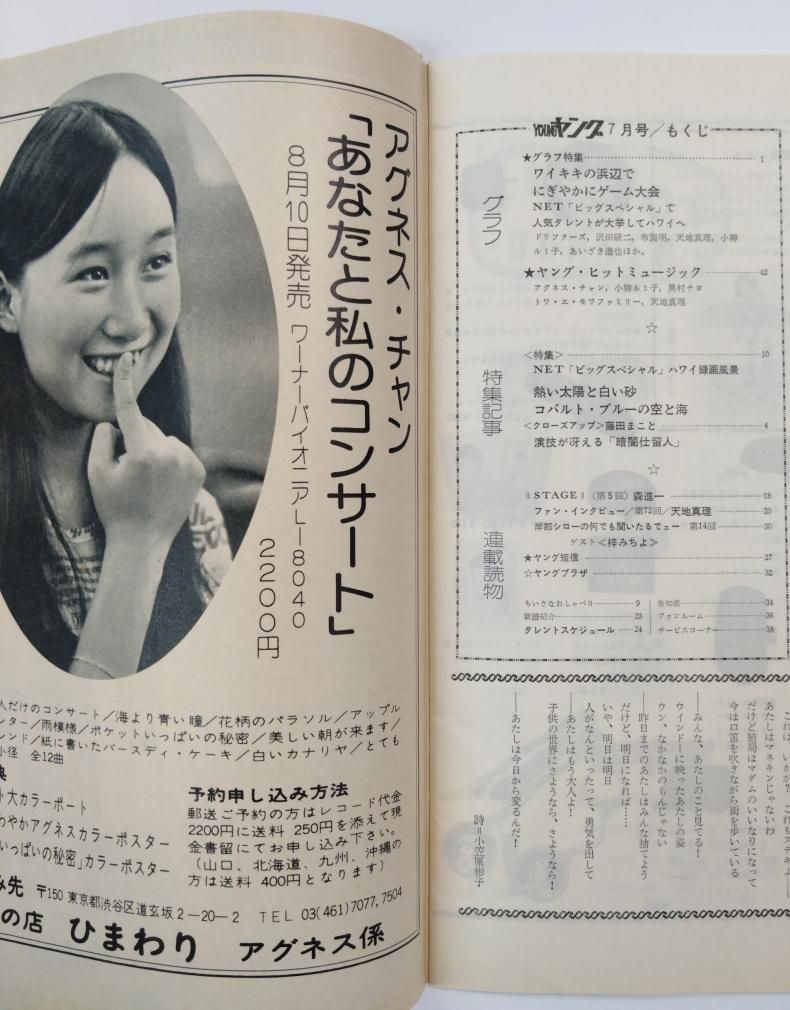 アグネス・チャン
「あなたと私のコンサート」
8月10日発売 ワーナーパイオニア L-8040
2200円
人だけのコンサート/海より青い瞳/花柄のパラソル/アップル
ンター/雨模様/ポケットいっぱいの秘密/美しい朝が来ます/
レンド/紙に書いたバースディ・ケーキ/白いカナリヤ/とても
小径 全12曲
典
ト大カラーポート
わやかアグネスカラーポスター
いっぱいの秘密」カラーポスター
予約申し込み方法
郵送ご予約の方はレコード代金
2200円に送料 250円を添えて現
金書留にてお申し込み下さい。
(山口、北海道、九州、沖縄の
方は送料 400円となります)
み先 〒150 東京都渋谷区道玄坂2-20-2 TEL 03(461)7077,7504
の店 ひまわり アグネス係
YOUNGヤング7月号/もくじ
グラフ
★グラフ特集 1
ワイキキの浜辺で
にぎやかにゲーム大会
NET「ビッグスペシャル」で
人気タレントが大挙してハワイへ
ドリフターズ,沢田研二,布施明,天地真理,小柳
ルミ子,あいざき進也ほか。
★ヤング・ヒットミュージック 42
アグネス・チャン,小柳ルミ子,奥村チヨ
トワ・エ・モワファミリー,天地真理
☆
特集記事
<特集> 10
NET「ビッグスペシャル」ハワイ録画風景
熱い太陽と白い砂
コバルト・ブルーの空と海
<クローズアップ>藤田まこと 4
演技が冴える「暗闇仕留人」
☆
連載読物
‖STAGE‖(第5回)森進一 18
ファン・インタビュー/第72回/天地真理 20
岸部シローの何でも聞いたるでェー 第14回 30
ゲスト<梓みちよ>
★ヤング短信 27
☆ヤングプラザ 32
ちいさなおしゃべり 9
新譜紹介 23
タレントスケジュール 24
告知板 34
ファンルーム 36
サービスコーナー 38
これは、いかが? これもステキよ——
あたしはマネキンじゃないわ
だけど結局はマダムのいいなりになって
今は口笛を吹きながら街を歩いている
——みんな、あたしのこと見てる!
ウインドーに映ったあたしの姿
ウン、なかなかのもんじゃない
——昨日までのあたしはみんな捨てよう
だけど、明日になれば……
いや、明日は明日
人がなんといったって、勇気を出して
——あたしはもう大人よ!
子供の世界にさようなら、さようなら!
——あたしは今日から変るんだ!
詩=小笠原彬子